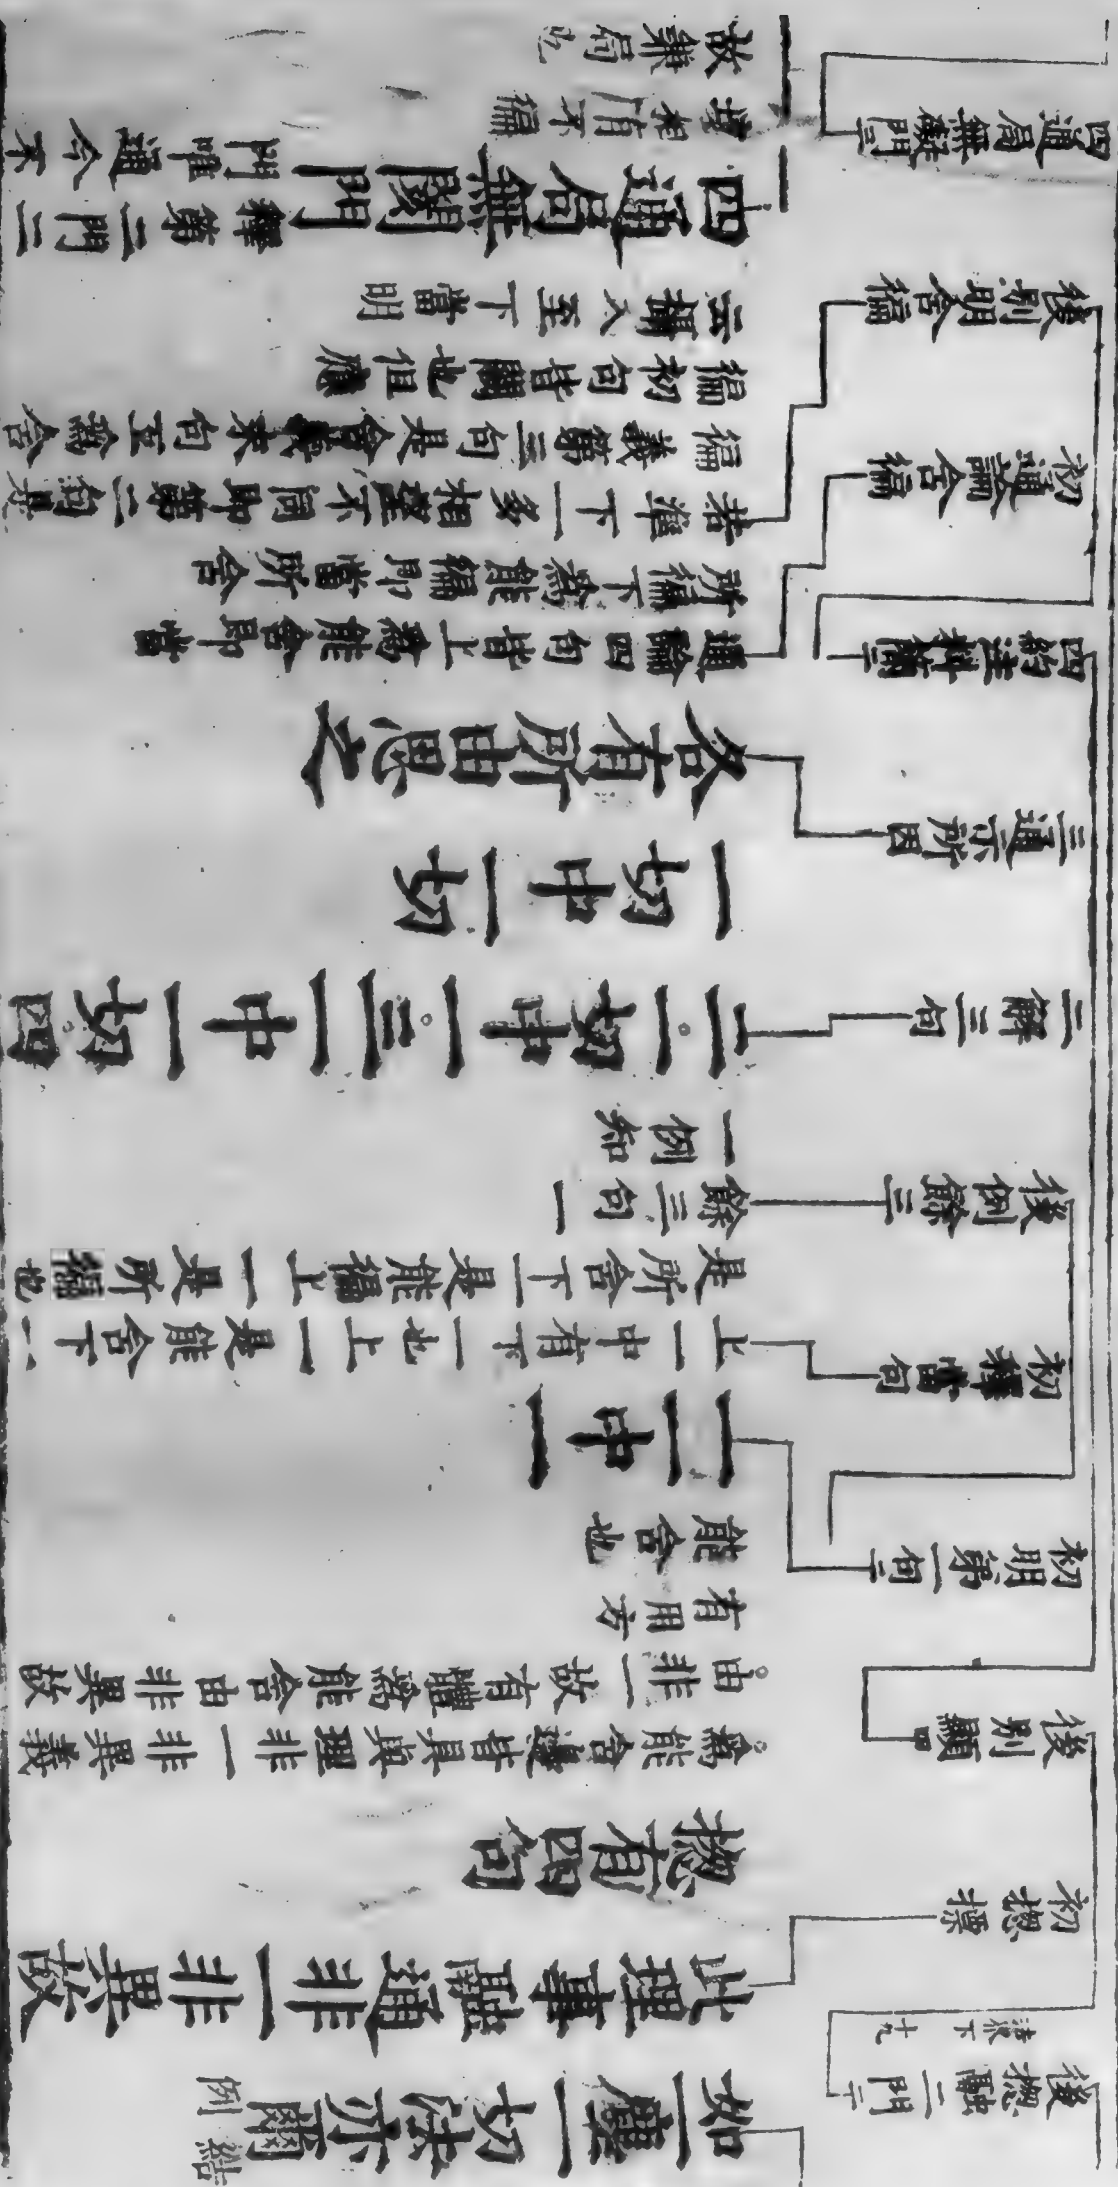 後總融二門二
如一塵一切法亦爾
結
例
初總標
此理事融通非一非異故
總有四句
後別顯四
為能含徧皆具與理非一非異義
由非一故有體為能含由非異故
有用方
能含也
初明第一句二
一一中一
初釋當句
上一中有下一也上一是能含下一
是所含下一是能徧上一是所徧也
後例餘三
餘三句一
一例知
二解三句
二一切中一三一中一切四
一切中一切
三通示所因
各有所由思之
四約義料簡二
初通論含徧
通論四句皆上為能含即當
所徧下為能徧即當所含
後別明含徧
若準下一多相望不同即第二句是
徧義第三句是含義末句互為含
徧初句皆闕也但應
云攝入至下當明
四通局無礙門三
四通局無閡門
釋第二門三
門唯通今不
事相有不徧
故兼局也